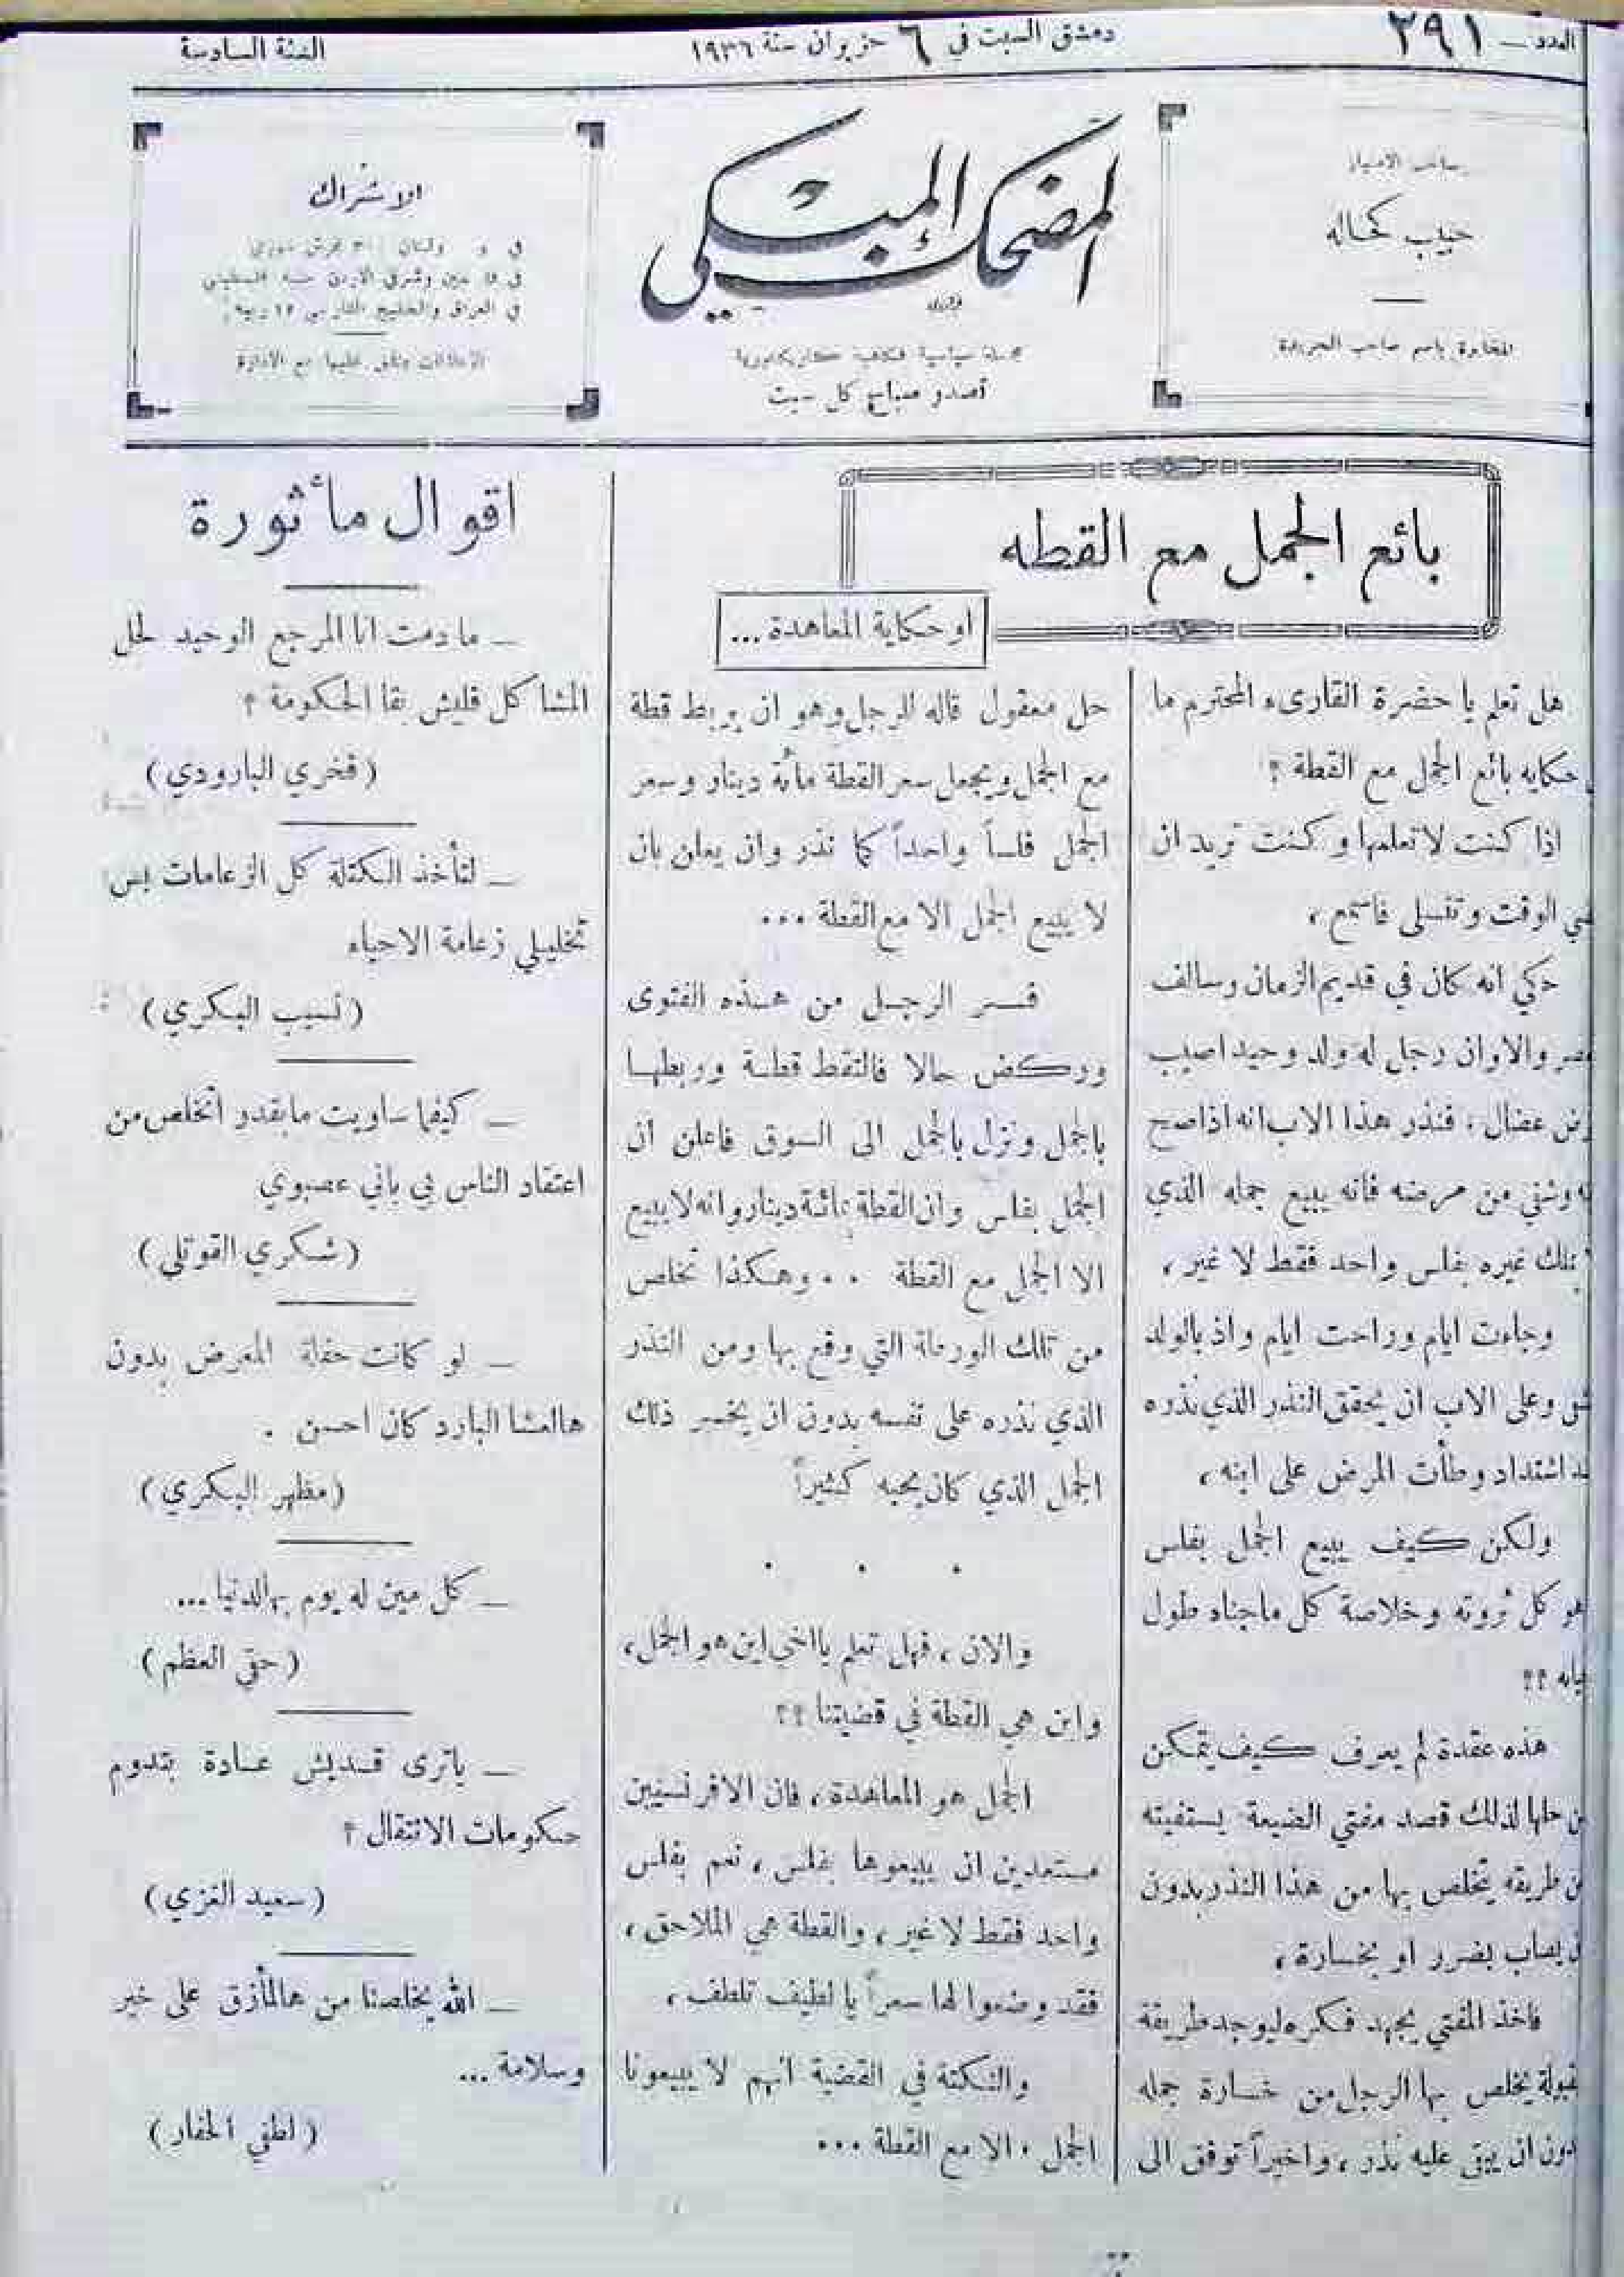 العدد ــ ٢٩١
دمشق السبت في ٦ حزيران سنة ١٩٣٦
السنة السادسة
صاحب الامتياز
حبيب كحاله
المخابرة باسم صاحب الجريدة
المضحك المبكي
مجلة سياسية فكاهية كاريكاتورية
تصدر صباح كل سبت
الاشتراك
في ولبنان قرش سوري
في وشرقي الاردن
في العراق والخليج الفارسي ١٢ ربية
الاعلانات يتفق عليها مع الادارة
بائع الجمل مع القطه
او حكاية المعاهدة ...
هل تعلم يا حضرة القارىء المحترم ما
حكايه بائع الجمل مع القطة ؟
اذا كنت لا تعلمها وكنت تريد ان
الوقت وتتسلى فاسمع ،
حكي انه كان في قديم الزمان وسالف
والاوان رجل له ولد وحيد اصيب
عضال ، فنذر هذا الاب انه اذا صح
وشفي من مرضه فانه يبيع جمله الذي
غيره بفلس واحد فقط لا غير ،
وجاءت ايام وراحت ايام واذ بالولد
وعلى الاب ان يحقق النذر الذي نذره
اشتداد وطأت المرض على ابنه ،
ولكن كيف يبيع الجمل بفلس
هو كل ثروته وخلاصة كل ماجناه طول
؟؟
هذه عقدة لم يعرف كيف يتمكن
حلها لذلك قصد مفتي الضيعة يستفيته
طريقه يتخلص بها من هذا النذر بدون
يصاب بضرر او بخسارة ،
فاخذ المفتي يجهد فكره ليوجد طريقة
يخلص بها الرجل من خسارة جمله
ان يبقى عليه نذر ، واخيراً توفق الى
حل معقول قاله للرجل وهو ان يربط قطة
مع الجمل ويجعل سعر القطة مائة دينار وسعر
الجمل فلساً واحداً كما نذر وان يعلن بان
لا يبيع الجمل الا مع القطة ...
فسر الرجل من هذه الفتوى
وركض حالا فالتقط قطة وربطها
بالجمل ونزل بالجمل الى السوق فاعلن ان
الجمل بفلس وان القطة بمائة دينار وانه لا يبيع
الا الجمل مع القطة .. وهكذا تخلص
من تلك الورطة التي وقع بها ومن النذر
الذي نذره على نفسه بدون ان يخسر ذلك
الجمل الذي كان يحبه كثيراً
. . .
والان ، فهل تعلم يا اخي اين هو الجمل ،
واين هي القطة في قضيتنا ؟؟
الجمل هو المعاهدة ، فان الافرنسيين
مستعدين ان يبيعوها بفلس ، نعم بفلس
واحد فقط لا غير ، والقطة هي الملاحق ،
فقد وضعوا لها سعراً يا لطيف تلطف ،
والنكتة في القضية انهم لا يبيعونا
الجمل ، الا مع القطة ...
اقوال مأثورة
ــ ما دمت انا المرجع الوحيد لحل
المشاكل قليش بقا الحكومة ؟
( فخري البارودي )
ــ لتأخذ الكتلة كل الزعامات بس
تخليلي زعامة الاحياء
( نسيب البكري )
ــ كيفما ساويت مابقدر اتخلص من
اعتقاد الناس بي باني عصبوي
( شكري القوتلي )
ــ لو كانت حفلة المعرض بدون
هالعشا البارد كان احسن .
( مظهر البكري )
ــ كل مين له يوم بهالدنيا ...
( حقي العظم )
ــ ياترى قديش عادة بتدوم
حكومات الانتقال ؟
( سعيد الغزي )
ــ الله يخلصنا من هالمأزق على خير
وسلامة ...
( لطفي الحفار )